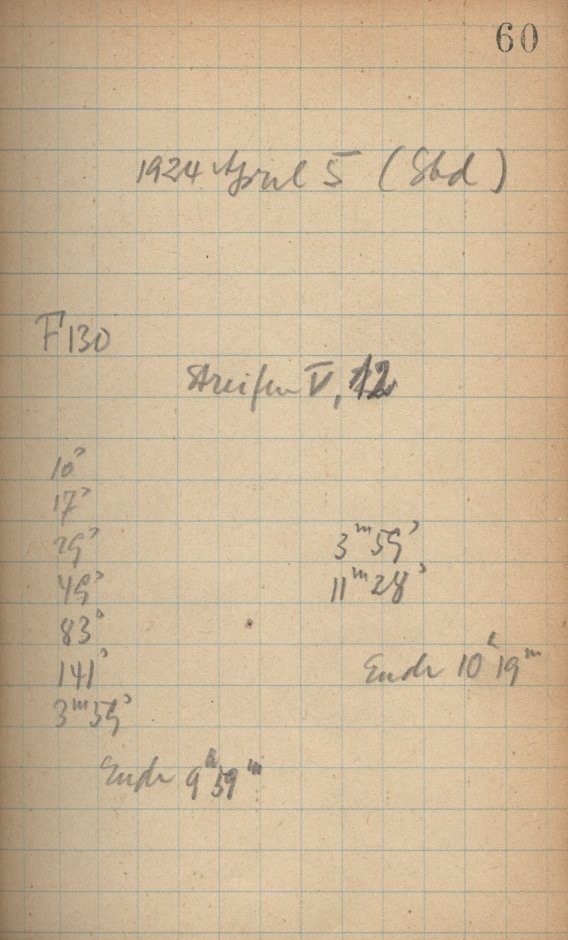 60
1924 April 5 (Sbd)
F 130
Streifen V, 12
10ˢ
17ˢ
29ˢ
49ˢ
83ˢ
141ˢ
3ᵐ 59ˢ
Ende 9ʰ 59ᵐ
3ᵐ 59ˢ
11ᵐ 28ˢ
Ende 10ʰ 19ᵐ